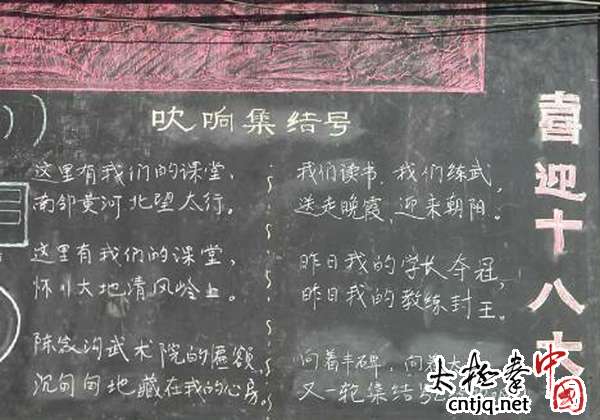 吹响集结号
这里有我们的课堂,
南邻黄河北望太行。
这里有我们的课堂,
怀川大地清风岭上。
陈家沟武术院的匾额,
沉甸甸地藏在我的心房。
我们读书,我们练武,
送走晚霞,迎来朝阳。
昨日我的学长夺冠,
昨日我的教练封王。
向着丰碑,向着太
又一轮集结号
喜迎十八大
太极拳中国
cntjq.net